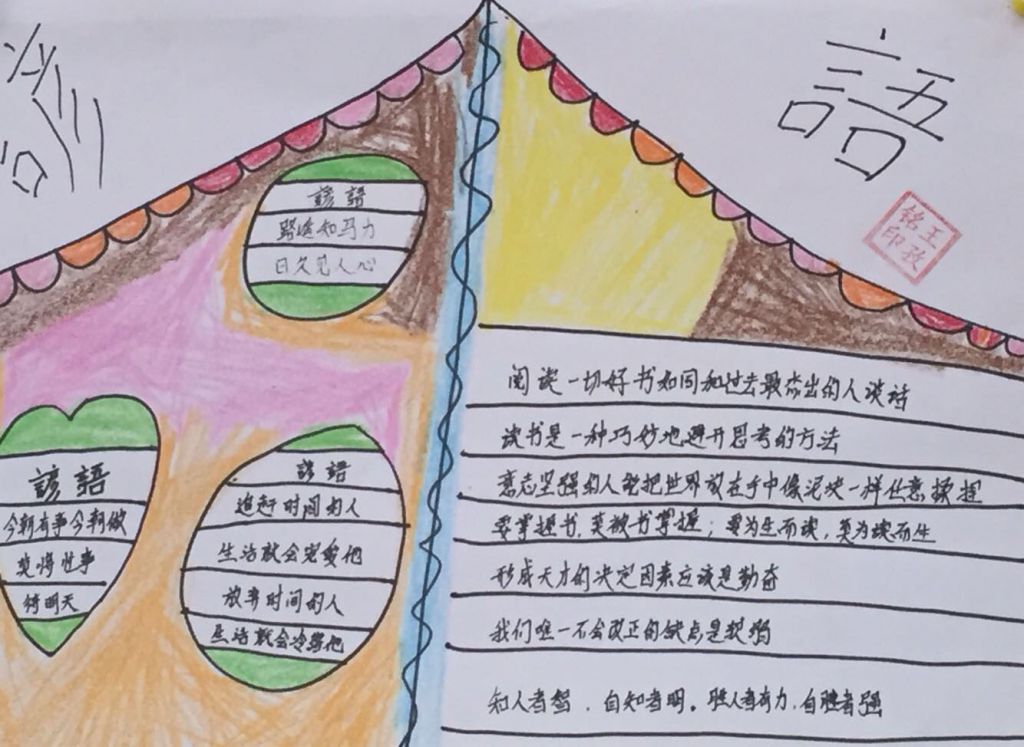 語
諺語
路遥知马力
日久见人心
諺語
今朝有事今朝做
莫将事
待明天
諺語
追赶时间的人
生活就会宠爱他
放弃时间的人
生活就会冷落他
阅读一切好书如同和过去最杰出的人谈话
读书是一种巧妙地避开思考的方法
意志坚强的人能把世界放在手中像泥块一样任意揉捏
要掌握书，莫被书掌握；要为生而读，莫为读而生
形成天才的决定因素应该是勤奋
我们唯一不会改正的缺点是软弱
知人者智，自知者明。胜人者有力，自胜者强